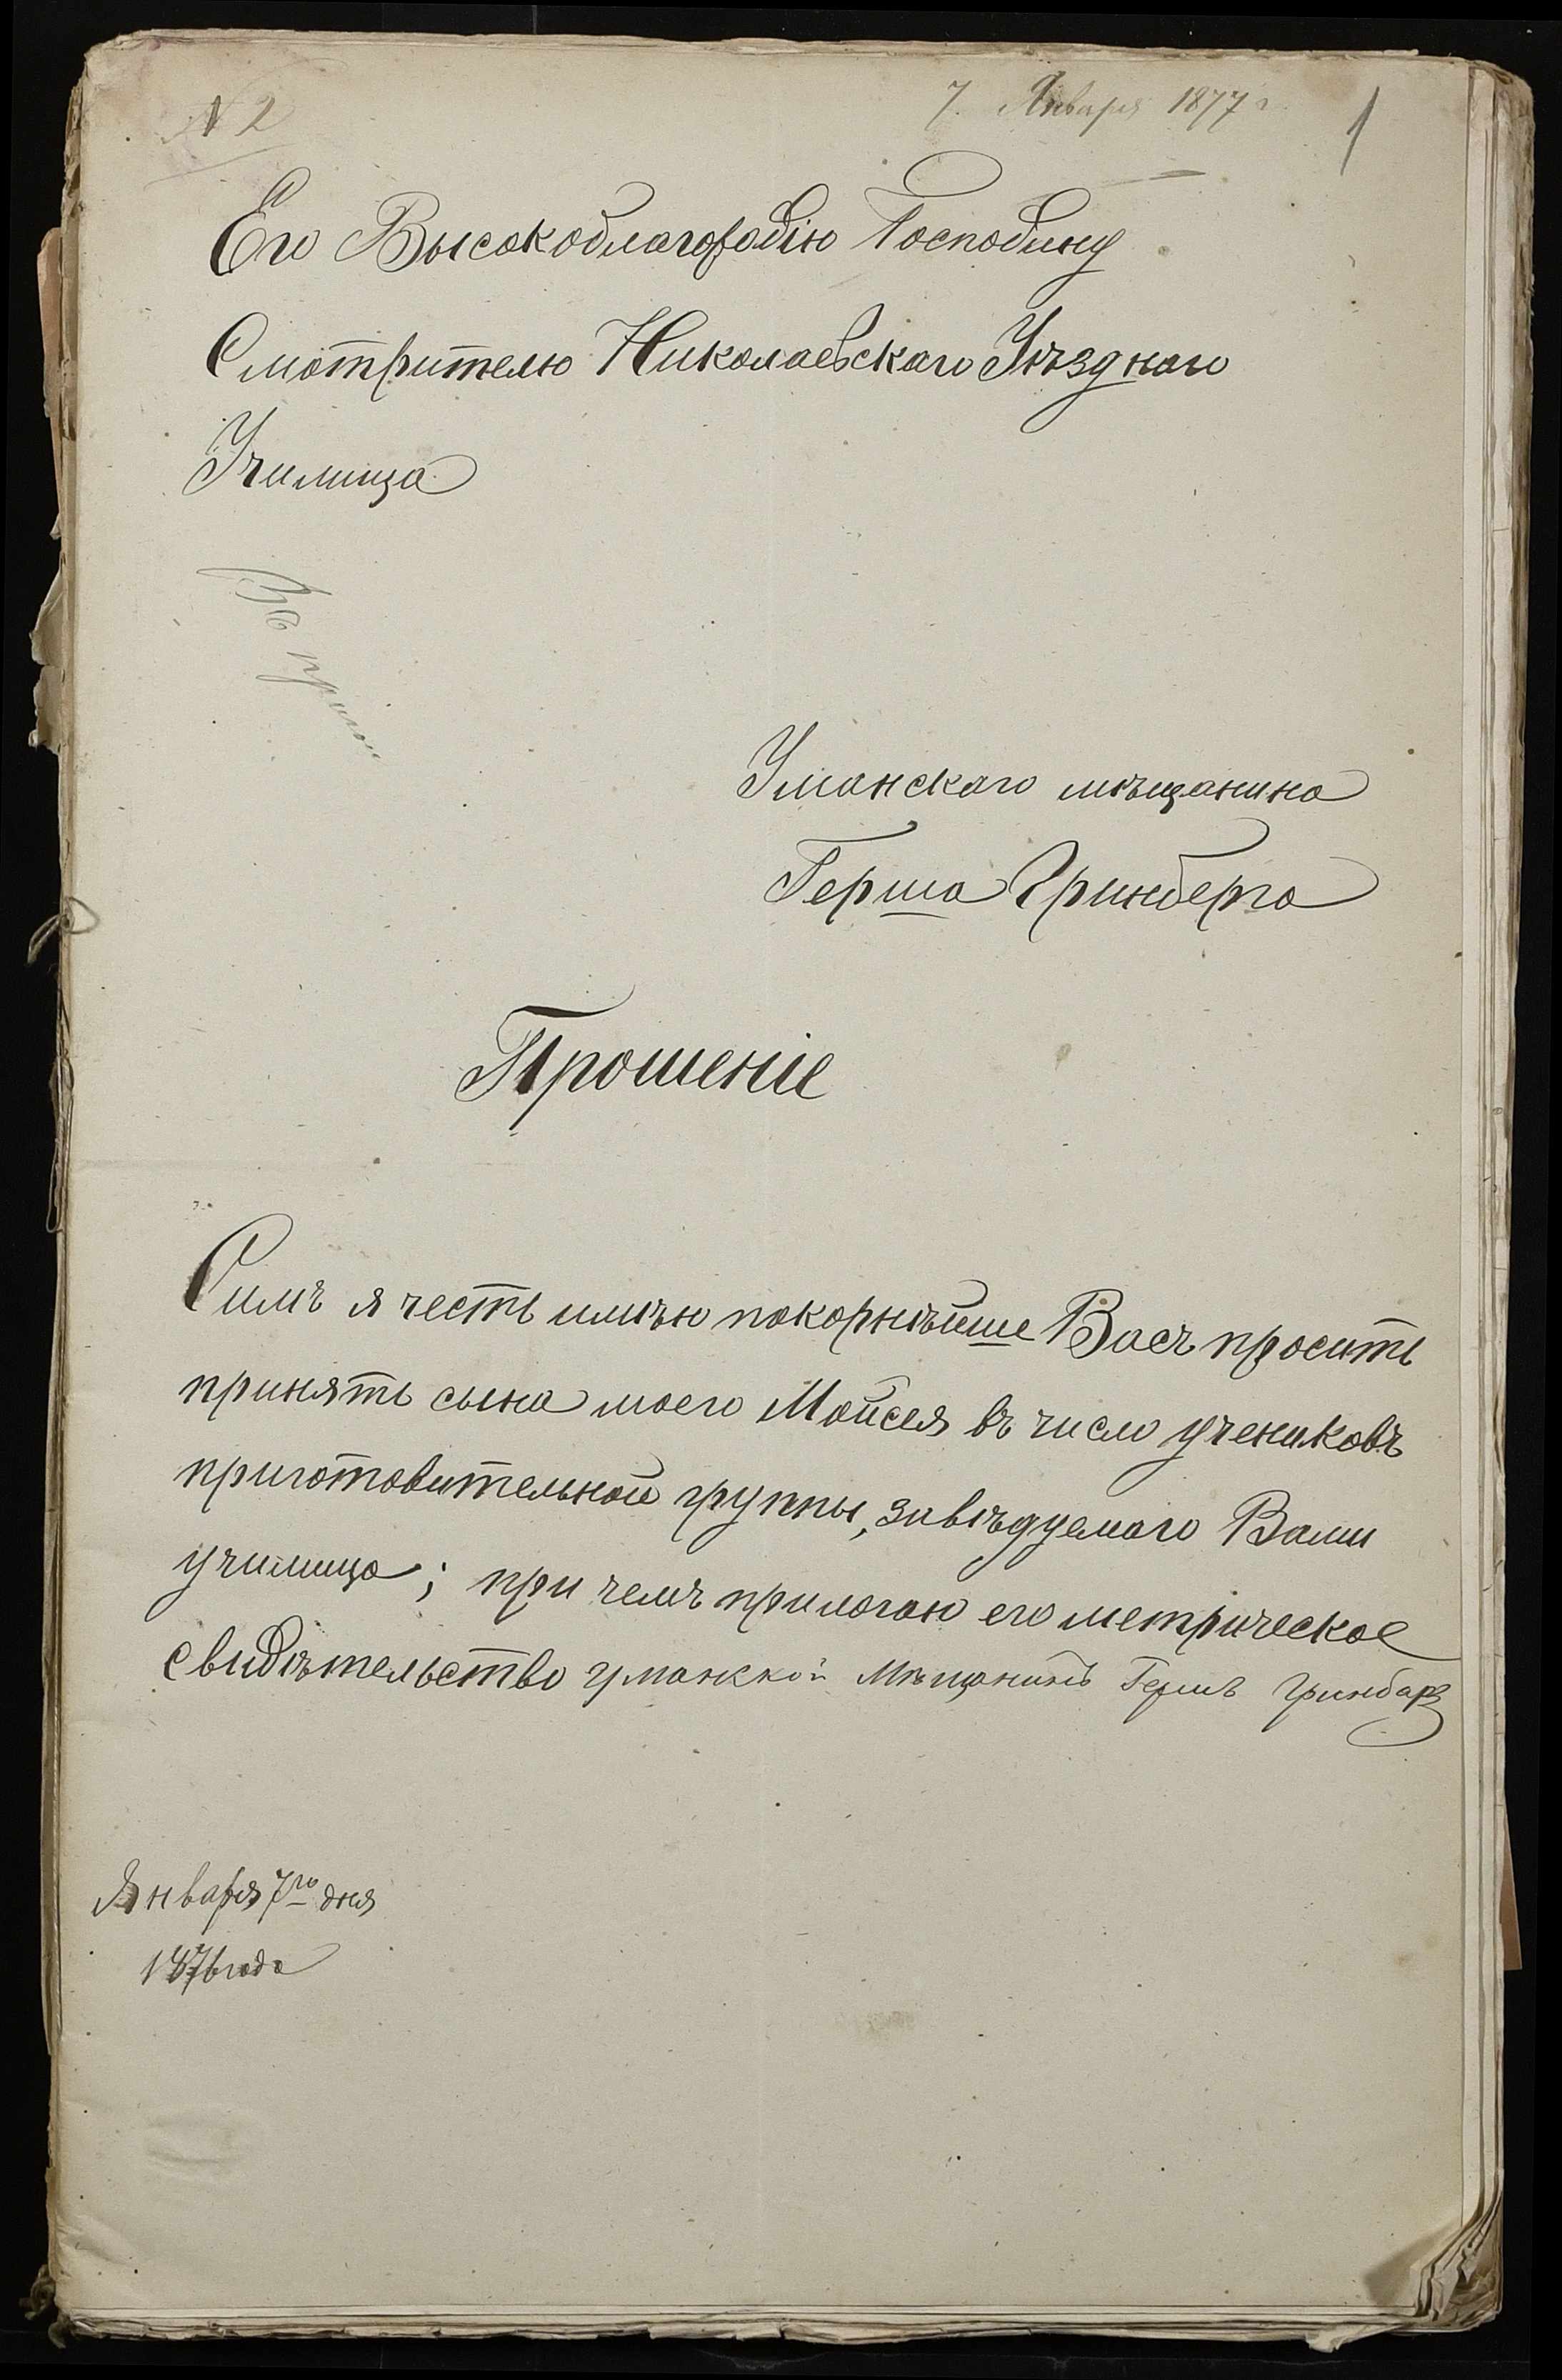 № 2
7. Января 1877 г.
1
Его Высокоблагородію Господину
Смотрителю Николаевскаго Уѣзднаго
Училища
Уманскаго мѣщанина
Герша Гринберга
Прошеніе
Симъ я честь имѣю покорнѣйше Васъ просить
принять сына моего Мойсея въ число учениковъ
приготовительной группы, завѣдуемаго Вами
училища; при чемъ прилогаю его метрическое
свидѣтельство уманккой Мѣщанинъ Гершъ Гринбарг
Января 7го дня
1876 года